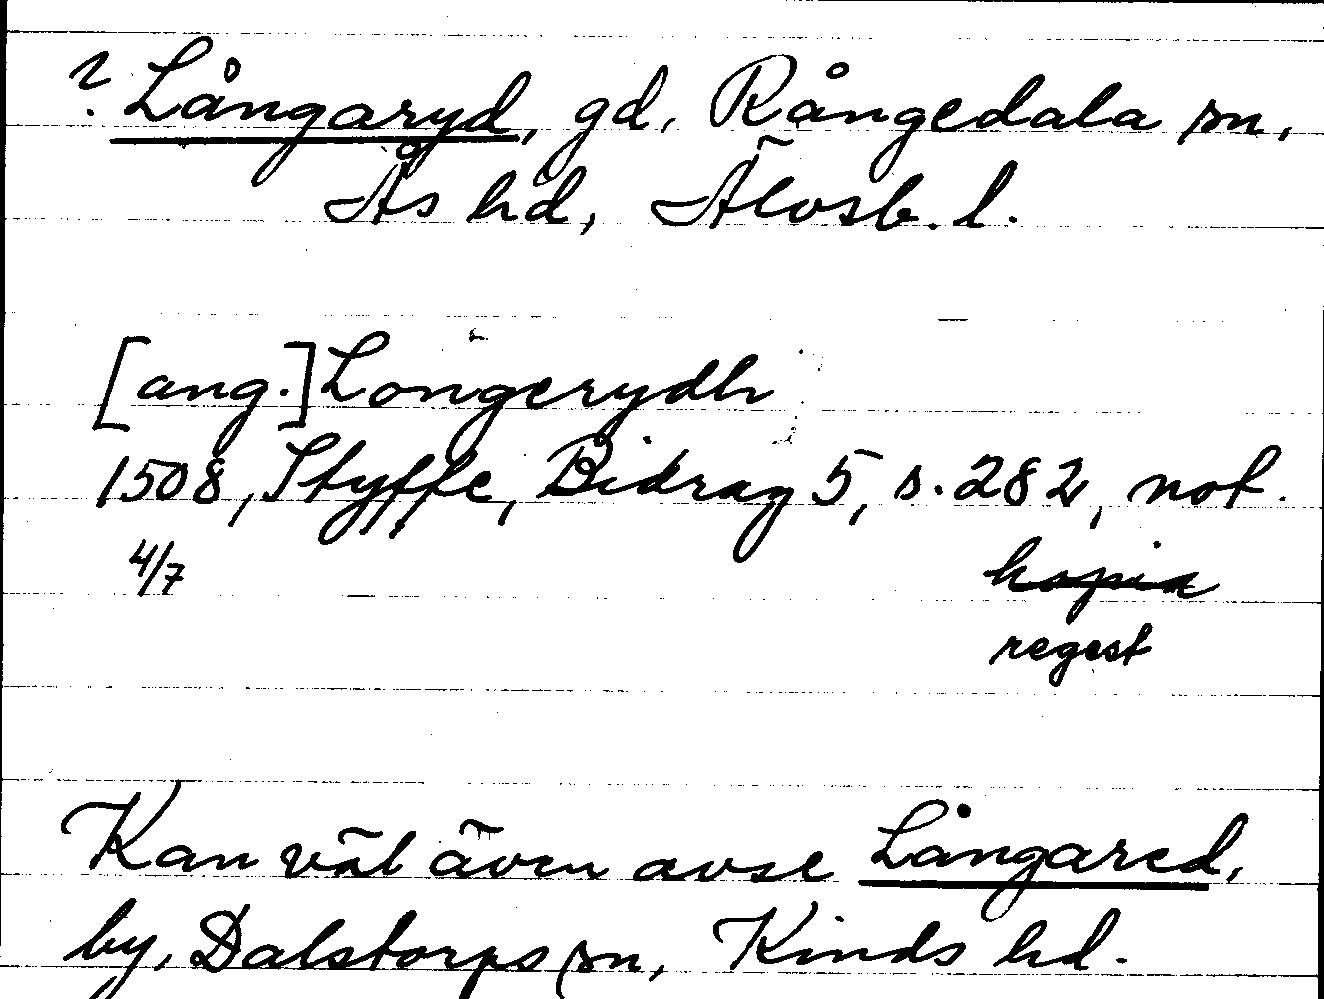 ? Långaryd, gd, Rångedala sn,
Ås hd, Älvsb. l.
[ang.] Longerydh
1508, Styffe, Bidrag 5, s. 282, not.
4/7 kopia
regest
Kan väl även avse Långared,
by, Dalstorps sn, Kinds hd.